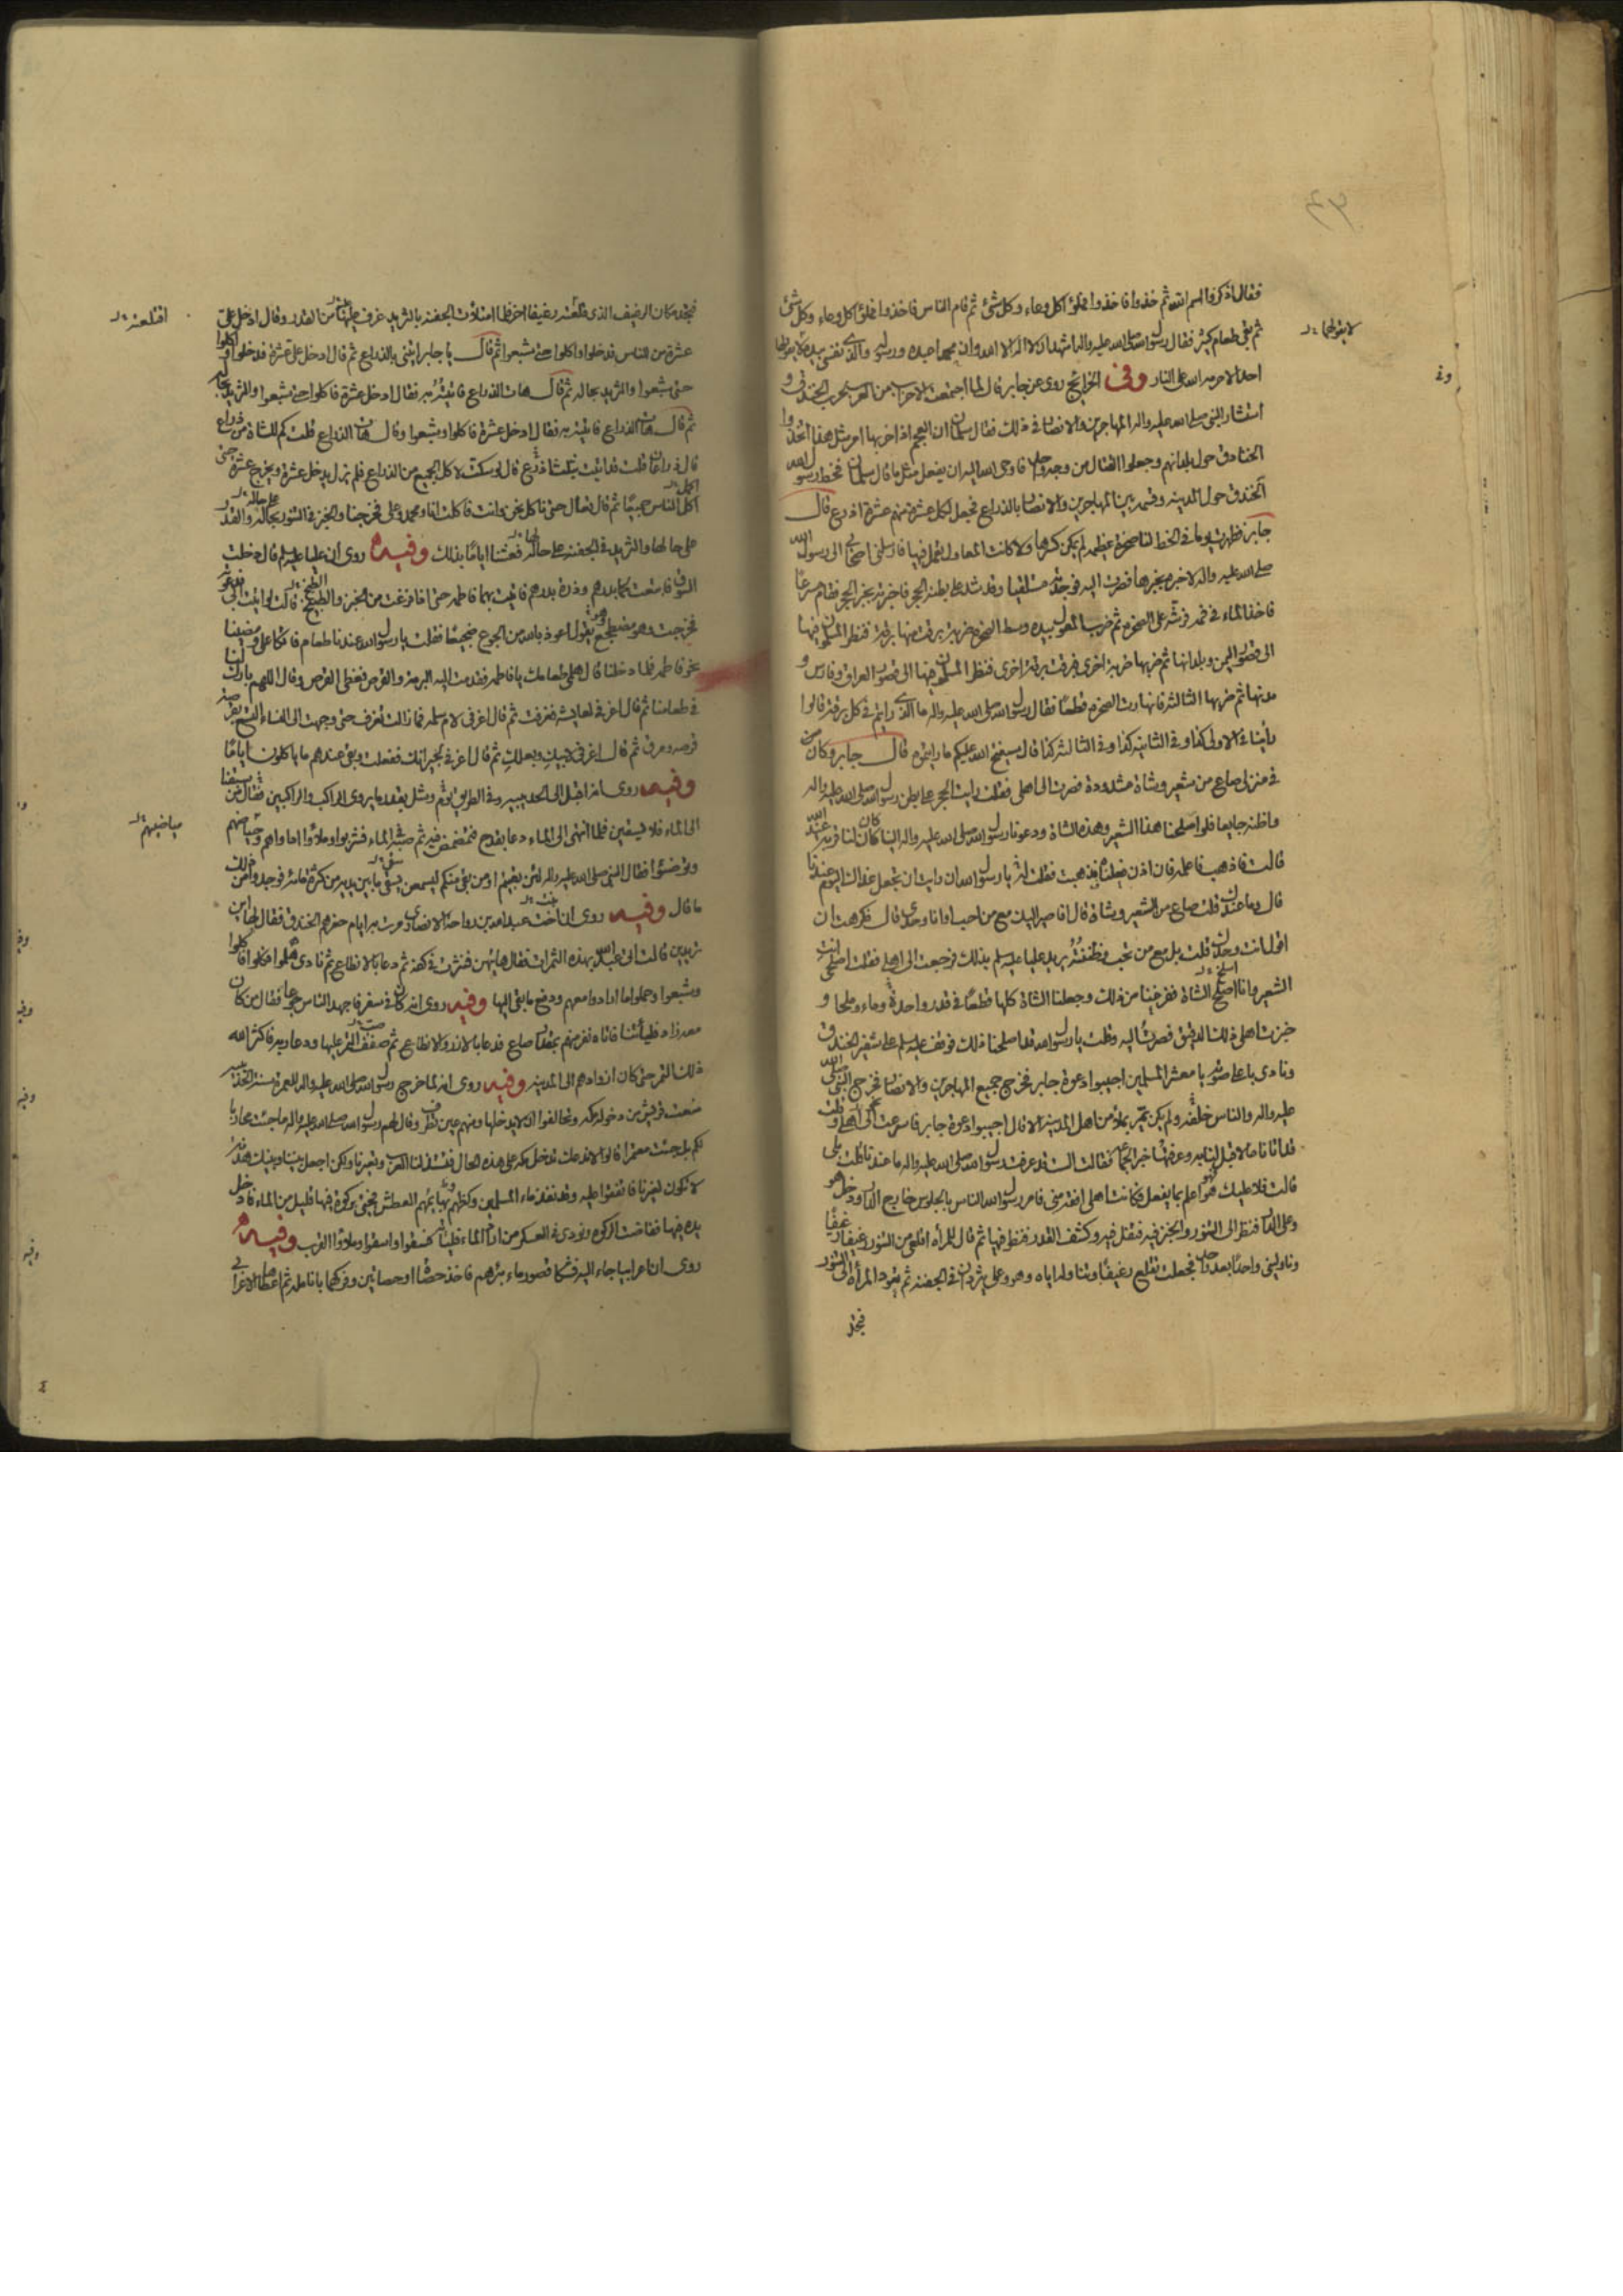 فقال اذكروا اسم الله ثم خذوا فاخذوا فملؤا كل وعاء وكل شئ ثم قام الناس فاخذوا فملؤا كل وعاء وكل شئ
ثم بقي طعام كثير فقال رسول الله صلى الله عليه واله اشهد ان لا اله الا الله وان محمدا عبده ورسوله والذي نفسي بيده لا يقولها
لا يقولها
احد الا حرمه الله على النار وفي الخرائج روى عن جابر قال لما اجتمعت الاحزاب من العرب لحرب الخندق و
استشار النبي صلى الله عليه واله المهاجرين والانصار في ذلك فقال سلمان ان العجم اذا حزبها امر مثل هذا اتخذوا
الخنادق حول بلدانهم وجعلوا القتال من وجه واحد فاوحى الله اليه ان يفعل مثل ما قال سلمان فخط رسول الله
الخندق حول المدينة وقسمه بين المهاجرين والانصار بالذراع فجعل لكل عشرة منهم عشرة اذرع قال
جابر فظهرت يوما في الخط لنا صخرة عظيمة لم يمكن كسرها ولا كانت المعاول تعمل فيها فارسلني اصحابي الى رسول الله
صلى الله عليه واله لاخبره بخبرها فصرت اليه فوجدته مستلقيا وقد شد على بطنه الحجر فاخبرته بخبر الحجر فقام مسرعا
فاخذ الماء في فمه فرشه على الصخرة ثم ضرب المعول بيده وسط الصخرة ضربة برقت منها برقة فنظر المسلمون فيها
الى قصور اليمن وبلدانها ثم ضربها ضربة اخرى فبرقت برقة اخرى فنظر المسلمون فيها الى قصور العراق وفارس و
مدنها ثم ضربها الثالثة فانهارت الصخرة قطعا فقال رسول الله صلى الله عليه واله ما الذي رايتم في كل برقة قالوا
راينا في الاولى كذا وفي الثانية كذا وفي الثالثة كذا قال سيفتح الله عليكم ما رايتموه قال جابر وكان
في منزلي صاع من شعير وشاة مشدودة فصرت الى اهلي فقلت رايت الحجر على بطن رسول الله صلى الله عليه واله
واظنه جايعا فلو اصلحنا هذا الشعير وهذه الشاة ودعونا رسول الله صلى الله عليه واله الينا كان لنا قربة عند الله
قالت فاذهب فاعلمه فان اذن فعلناه فذهبت فقلت له يا رسول الله ان رايت ان تجعل غداك اليوم عندنا
قال وما عندك قلت صاع من الشعير وشاة قال افاصير اليك مع من احب او انا وحدي قال فكرهت ان
اقول انت وحدك قلت بل مع من تحب وظننته يريد عليا عليه السلم بذلك فرجعت الى اهلي فقلت اصلحي انت
الشعير وانا اصلح الشاة ففرغنا من ذلك وجعلنا الشاة كلها قطعا في قدر واحدة وماء وملحا و
خبزت اهلي ذلك الدقيق فصرت اليه وقلت يا رسول الله قد اصلحنا ذلك فوقف عليه السلم على شفير الخندق
ونادى باعلى صوته يا معشر المسلمين اجيبوا دعوة جابر فخرج جميع المهاجرين والانصار فخرج النبي صلى الله
عليه واله والناس خلفه ولم يكن يمر بملاء من اهل المدينة الا قال اجيبوا دعوة جابر فاسرعت الى اهلي وقلت
قد اتانا ما لا قبل لنا به وعرفتها خبر الجماعة فقالت الست قد عرفت رسول الله صلى الله عليه واله ما عندنا قلت بلى
قالت فلا عليك هو اعلم بما يفعل فكانت اهلي افقه مني فامر رسول الله الناس بالجلوس خارج الدار ودخل هو
وعلى الدار فنظر الى التنور والخبز فيه فتفل فيه وكشف القدر فنظر فيها ثم قال للمرأة اقلعي من التنور رغيفا رغيفا
وناوليني واحدا بعد واحد فجعلت تقلع رغيفا وتناوله اياه وهو وعلي يثردان في الجفنة ثم تعود المرأة الى التنور
فتجد
فتجد مكان الرغيف الذي قلعته رغيفا اخر فلما امتلأت الجفنة بالثريد غرف عليها من القدر وقال ادخل علي
اقتلعته
عشرة من الناس فدخلوا واكلوا حتى شبعوا ثم قال يا جابر ايتني بالذراع ثم قال ادخل علي عشرة فدخلوا واكلوا
حتى شبعوا والثريد بحاله ثم قال هات الذراع فاتيته به فقال ادخل عشرة فاكلوا حتى شبعوا والثريد بحاله
ثم قال هات الذراع فاتيته به فقال ادخل عشرة فاكلوا وشبعوا وقال هات الذراع قلت كم للشاة من ذراع
قال ذراعان قلت قد اتيت بثلث اذرع قال لو سكت لاكل الجميع من الذراع فلم يزل يدخل عشرة ويخرج عشرة حتى
اكل الناس جميعا ثم قال تعال حتى ناكل نحن وانت فاكلت انا ومحمد وعلي فخرجنا والخبز في التنور بحاله والقدر
على حالها والثريد في الجفنة على حاله فعشنا اياما بذلك وفيه روى ان عليا عليه السلم قال دخلت
السوق فابتعت لحما بدرهم وذرة بدرهم فاتيت بهما فاطمة حتى اذا فرغت من الخبز والطبخ قالت لو اتيت ابي
فخرجت وهو مضطجع يقول اعوذ بالله من الجوع ضجيعا فقلت يا رسول الله عندنا طعام فاتكأ علي ومضينا
نحو فاطمة فلما دخلنا قال هلمي طعامك يا فاطمة فقدمت اليه البرمة والقرص فغطى القرص وقال اللهم بارك لنا
في طعامنا ثم قال اغرفي لعايشة فغرفت ثم قال اغرفي لام سلمة فما زالت تغرف حتى وجهت الى النساء التسع بقرصة
قرصة ومرق ثم قال اغرفي لابيك وبعلك ثم قال اغرفي لجيرانك ففعلت وبقي عندهم ما ياكلون اياما
وفيه روى انه اقبل الى الحديبية وفي الطريق وشل بقدر ما يروى الراكب والراكبين فقال من سبقنا
الى الماء فلا يستقين فلما انتهى الى الماء دعا بقدح فتمضمض فيه ثم صبه في الماء فشربوا وملأوا اداواهم وحياضهم
مياضيهم
وتوضئوا فقال النبي صلى الله عليه واله لئن بقيتم او من بقي منكم ليسمعن بسقي ما بين يديه من كثرة مائه فوجدوا من ذلك
ما قال وفيه روى ان اخت عبد الله بن رواحة الانصاري مرت به ايام حفرهم الخندق فقال لها اين
تريدين قالت الى عبد الله بهذه التمرات فقال هاتيهن فنثرت في كفه ثم دعا بالانطاع ثم نادى هلموا فكلوا فاكلوا
وشبعوا وحملوا ما ارادوا معهم ودفع ما بقي اليها وفيه روى انه كان في سفر فاجهد الناس جوعا فقال من كان
معه زاد فلياتنا فاتاه نفر منهم بمقدار صاع فدعا بالازر والانطاع ثم صفف التمر عليها ودعا ربه فاكثر الله
ذلك التمر حتى كان ازوادهم الى المدينة وفيه روى انه لما خرج رسول الله صلى الله عليه واله للعمرة سنة الحديبية
منعت قريش من دخوله مكة وتحالفوا انه لا يدخلها ومنهم عين تطرف وقال لهم رسول الله صلى الله عليه واله ما جئت محاربا
لكم بل جئت معتمرا قالوا لا ندعك تدخل مكة على هذه الحال فتستذلنا العرب وتعيرنا ولكن اجعل بيننا وبينك هدنة
لا تكون لغيرنا فاتفقوا عليه وقد نفد ماء المسلمين وكظهم وبهائمهم العطش فجئ بركوة فيها قليل من الماء فادخل
يده فيها ففاضت الركوة ونودي في العسكر من اراد الماء فلياته فسقوا واستقوا وملأوا القرب وفيه
روى ان اعرابيا جاء اليه فشكا نضوب ماء بئرهم فاخذ حصاة او حصاتين وفركها بانامله ثم اعطاها الاعرابي